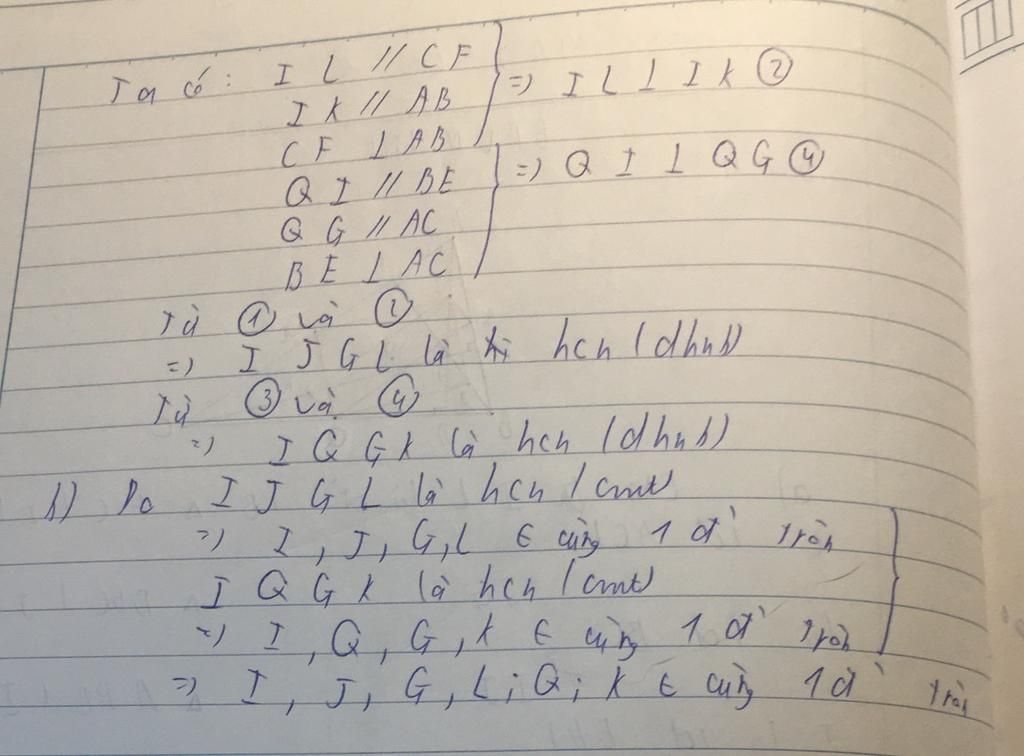 Ta có : I L // CF
I K // AB
CF ⊥ AB
=) I L ⊥ I K ②
Q I // BE
Q G // AC
BE ⊥ AC
=) Q I ⊥ Q G ④
Từ ① và ②
=) I J G L là hcn (dhnb)
Từ ③ và ④
=) I Q G K là hcn (dhnb)
b) Do I J G L là hcn (cmt)
=) I, J, G, L ∈ cùng 1 đ' tròn
I Q G K là hcn (cmt)
=) I, Q, G, K ∈ cùng 1 đ' tròn
=) I, J, G, L; Q; K ∈ cùng 1 đ' tròn